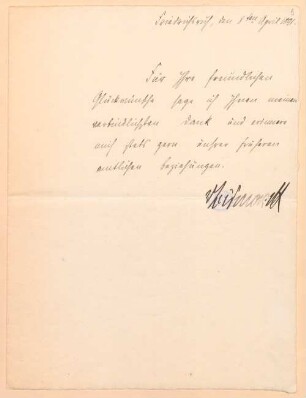 Friedrichsruh, den 1ten April 1891.
Für Ihre freundlichen
Glückwünsche sage ich Ihnen meinen
verbindlichsten Dank und erinnere
mich stets gern unsrer früheren
amtlichen beziehungen.
vBismarck